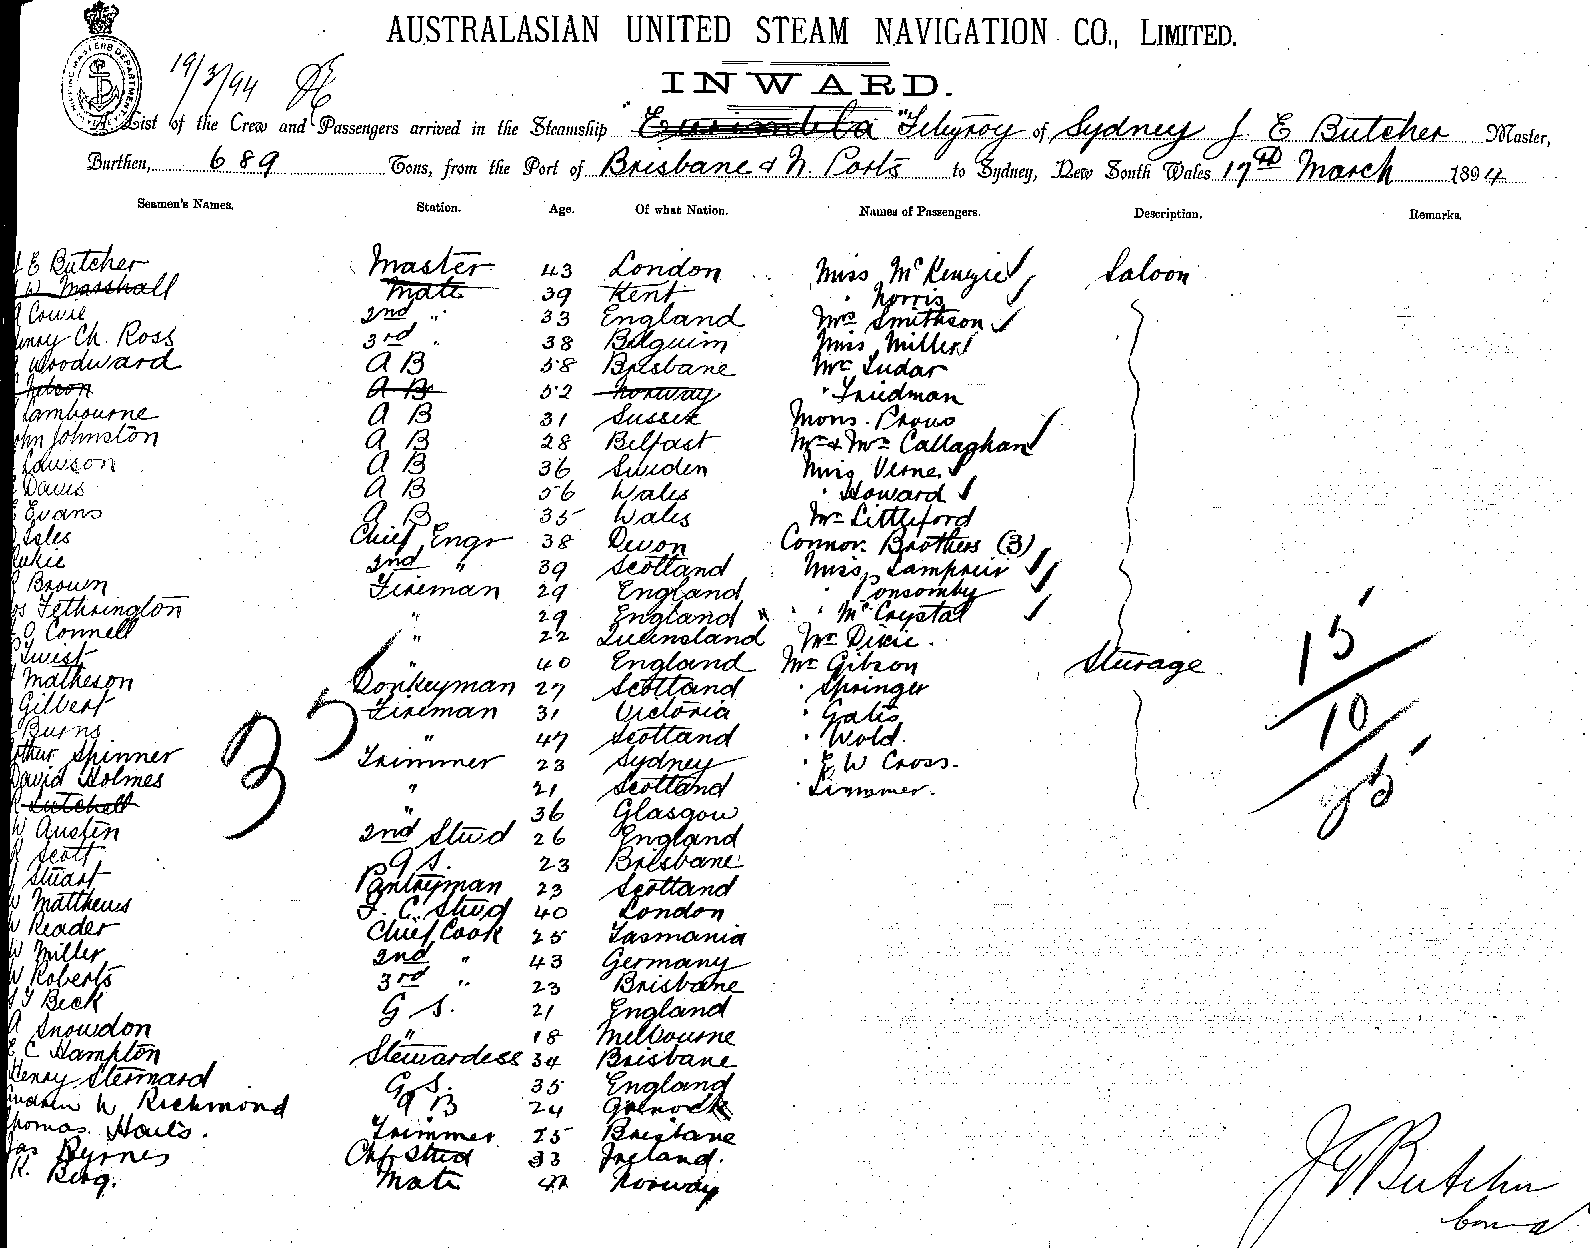 AUSTRALASIAN UNITED STEAM NAVIGATION CO., LIMITED.
19/3/94
INWARD.
A List of the Crew and Passengers arrived in the Steamship "Eurimbla "Fitzroy of Sydney J. E Butcher Master,
Burthen, 689 Tons, from the Port of Brisbane & N. Ports to Sydney, New South Wales 17th March 1894
Seamen's Names. Station. Age. Of what Nation. Names of Passengers. Description. Remarks.
J E Butcher Master 43 London Miss McKenzie Saloon
W Marshall Mate 39 Kent " Norris
Cowie 2nd " 33 England Mrs Smithson
Henry Ch. Ross 3rd " 38 Belguim Miss Miller
Woodward A B 58 Brisbane Mr Ludar
A B 52 Norway " Friedman
Lambourne A B 31 Sussex Mons. Prous
John Johnston A B 28 Belfast Mr & Mrs Callaghan
Lawson A B 36 Sweden Miss Verne
Davis A B 56 Wales " Howard
Evans A B 35 Wales Mr Littleford
Isles Chief Engr 38 Devon Connor Brothers (3)
2nd " 39 Scotland Miss Lamprier
Brown Fireman 29 England " Ponsomby
Jos Fethrington " 29 England " McCrystal
O Connell " 22 Queensland Mr Dixie.
Twist " 40 England Mr Gibson Sturage
Matheson Donkeyman 27 Scotland " Springer
Gilbert Fireman 31 Victoria " Gates
Burns " 47 Scotland " Wold.
Arthur Spinner Trimmer 23 Sydney " E W Cross.
David Holmes " 21 Scotland " Limmer.
" 36 Glasgow
W Austin 2nd Stud 26 England
Scott G S. 23 Brisbane
Stuart Pantryman 23 Scotland
W Matthews F. C. Stud 40 London
W Reader Chief Cook 25 Tasmania
W Miller 2nd " 43 Germany
W Roberts 3rd " 23 Brisbane
J Beck G S. 21 England
A Snowdon " 18 Melbourne
E C Hampton Stewardess 34 Brisbane
Henry Stennard G S. 35 England
W Richmond A B 24 Grenock
Thomas Trimmer 25 Brisbane
Jas Byrnes Chf Stud 33 Ireland.
K. Berg. Mate Norway
35
15
10
25
J E Butcher